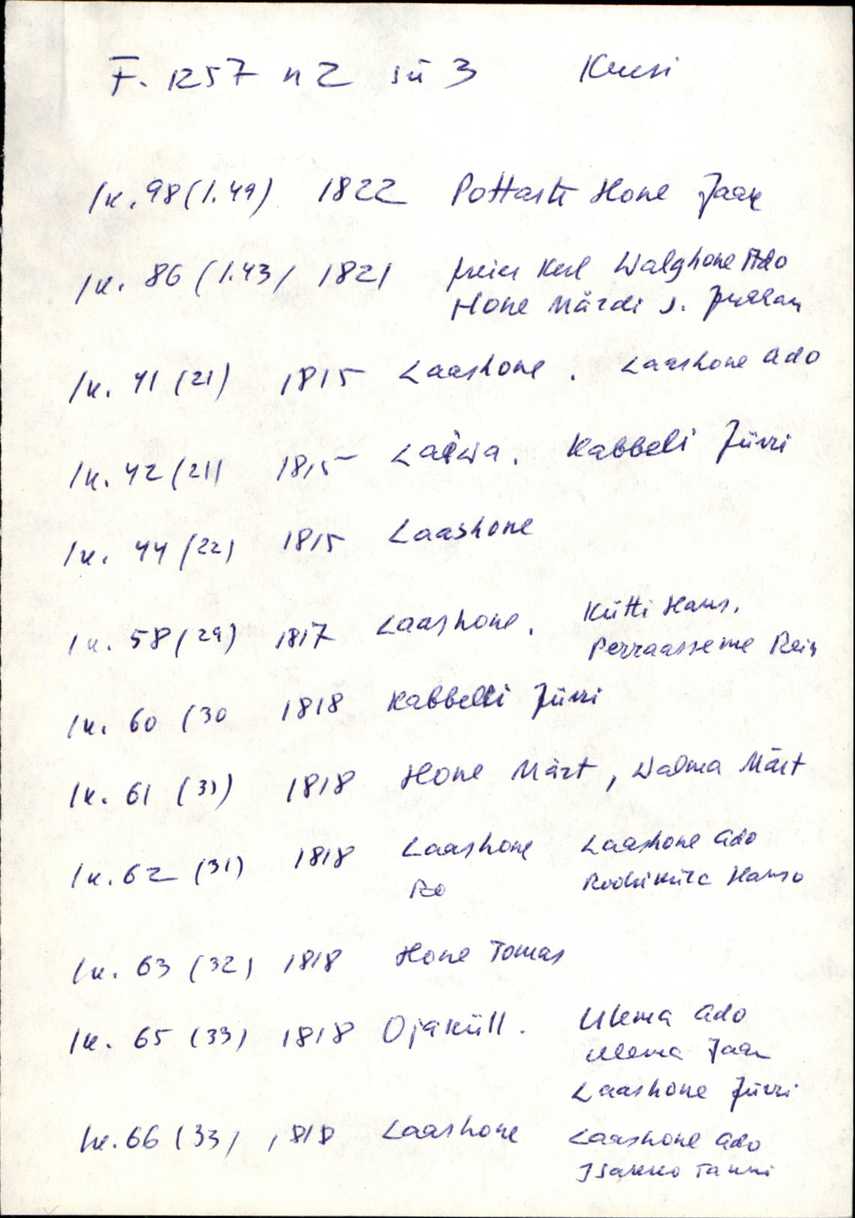 F. 1257 n 2 sü 3 Kursi
lk. 98 (l. 49) 1822 Pottaste Hone Jaan
lk. 86 (l. 43) 1821 freier Kerl Walghone Ado
Hone Märdi s. Juhhan
lk. 41 (21) 1815 Laashone. Laashone Ado
lk. 42 (21) 1815 Laiwa. Kabbeli Jürri
lk. 44 (22) 1815 Laashone
lk. 58 (29) 1817 Laashone. Kütti Hans.
Perraasseme Rein
lk. 60 (30 1818 Kabbelli Jürri
lk. 61 (31) 1818 Hone Märt, Walma Märt
lk. 62 (31) 1818 Laashone Laashone Ado
Hanso
lk. 63 (32) 1818 Hone Tomas
lk. 65 (33) 1818 Ojaküll. Ulema Ado
Ulema Jaan
Laashone Jürri
lk. 66 (33) 1818 Laashone Laashone Ado
Tanni